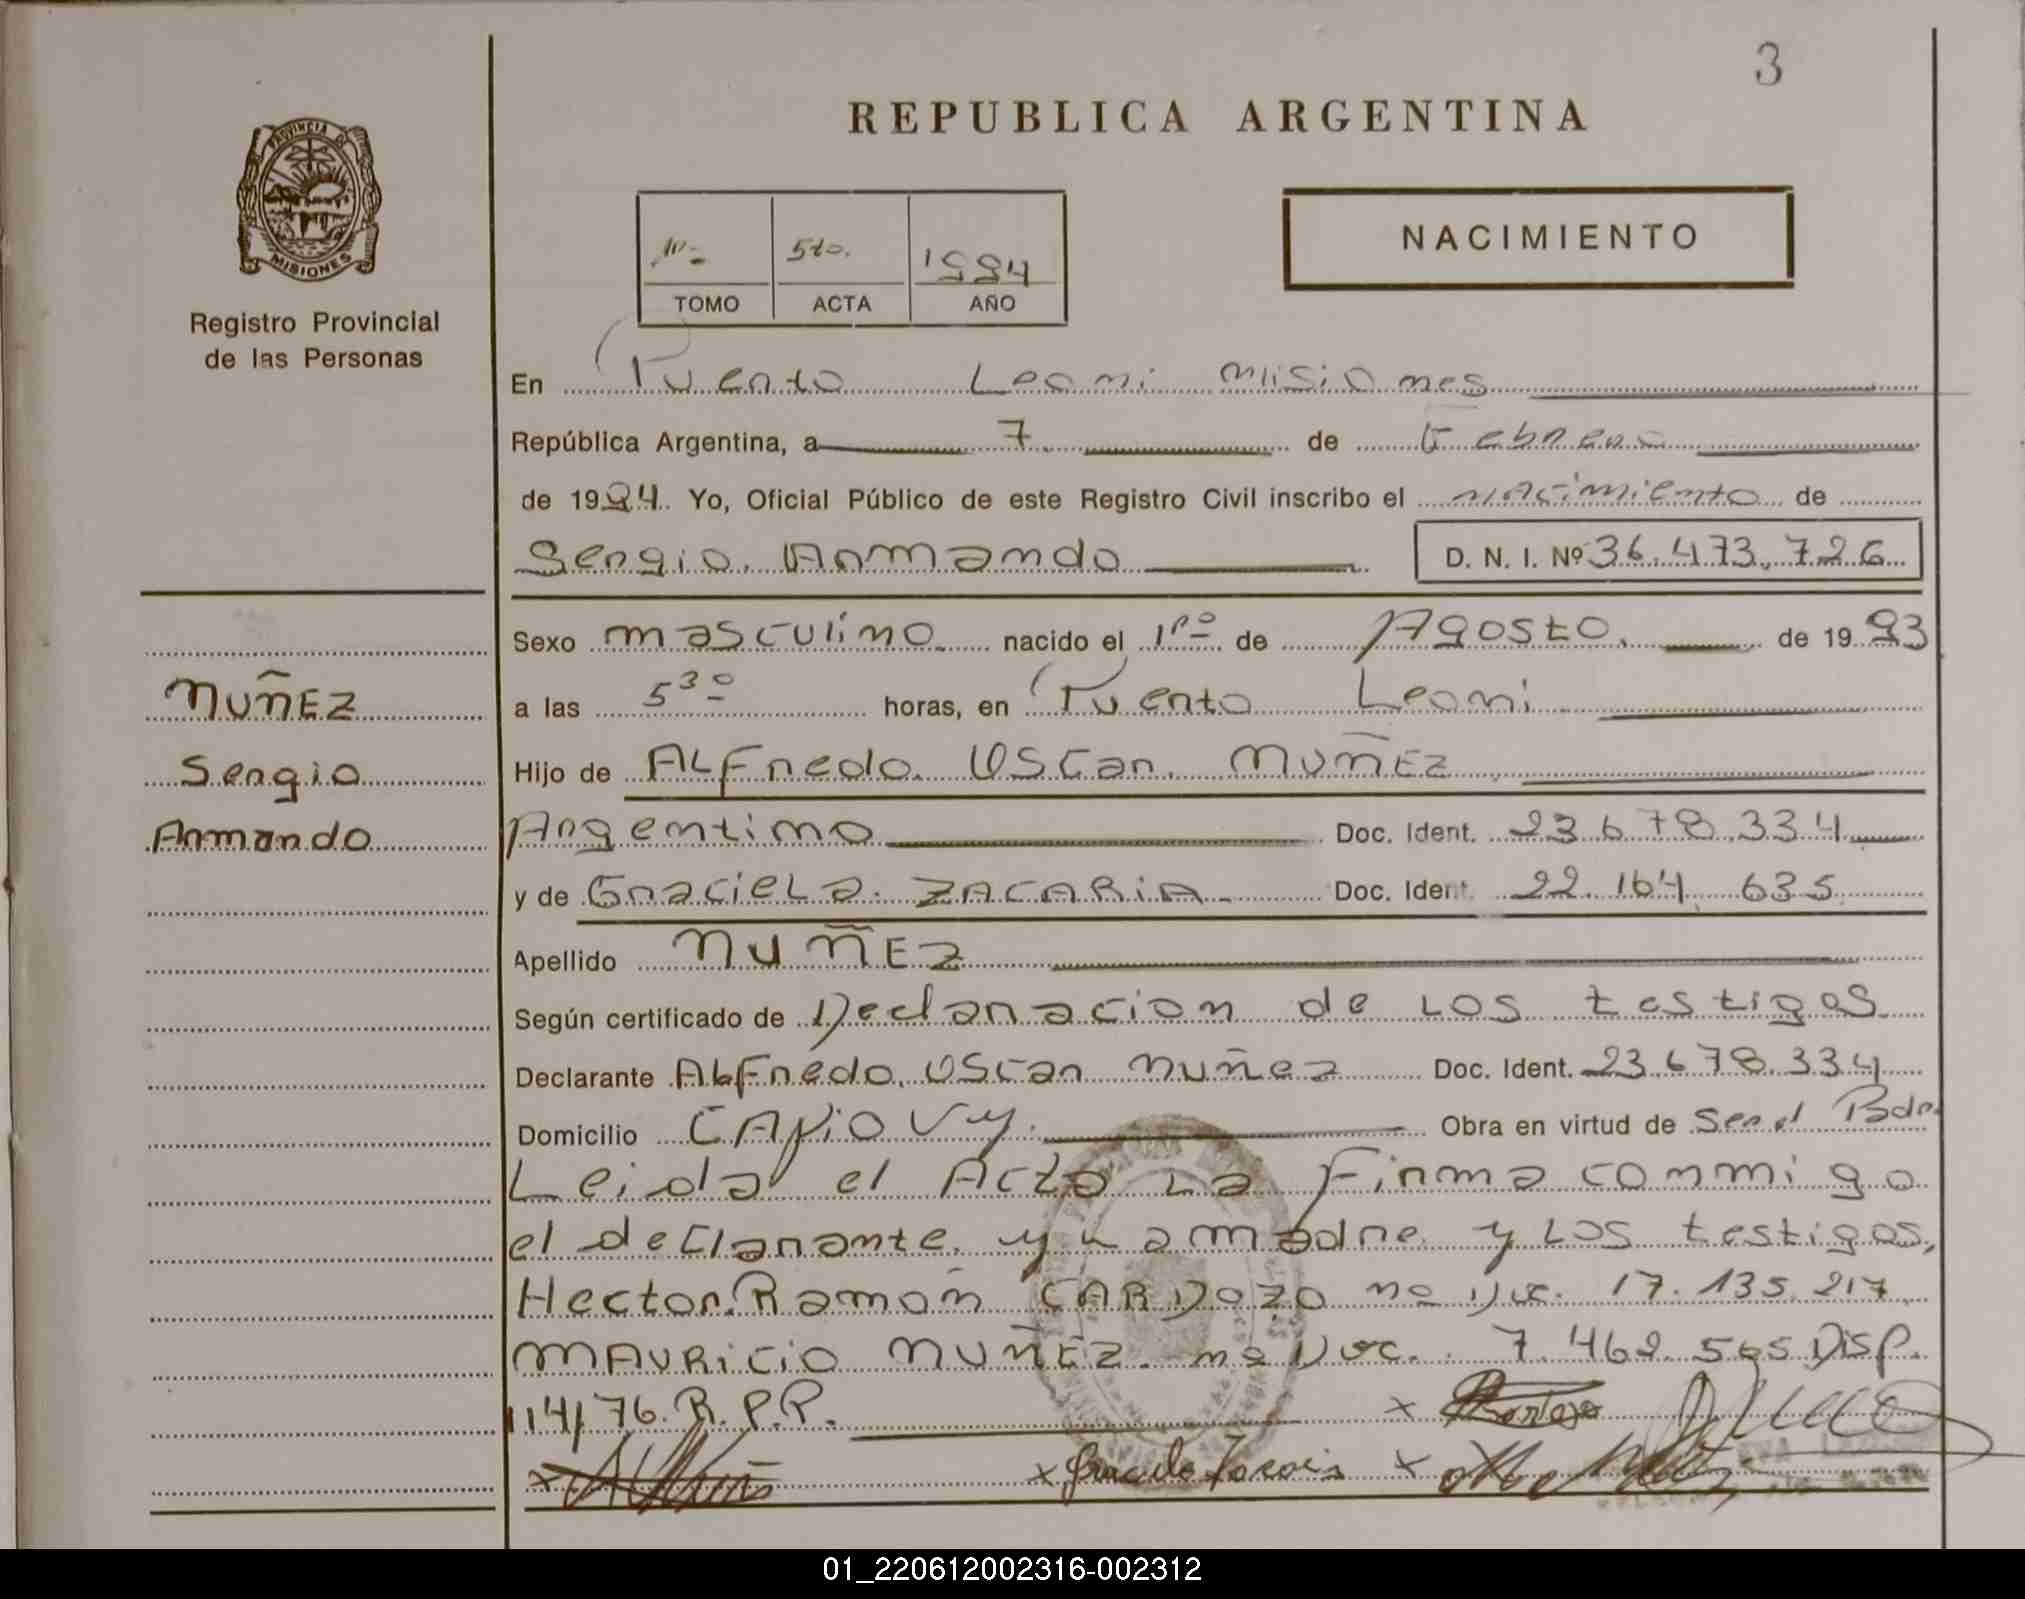 3
REPUBLICA ARGENTINA
PROVINCIA DE
MISIONES
Registro Provincial
de las Personas
5to. 1994
TOMO ACTA AÑO
NACIMIENTO
En Puerto Leoni Misiones
República Argentina, a 7 de Febrero
de 1994. Yo, Oficial Público de este Registro Civil inscribo el nacimiento de
Sergio Armando D. N. I. Nº 36.473.726
Sexo masculino nacido el 1ro de Agosto. de 1993
NUÑEZ
Sergio
Armando
a las 5 30 horas, en Puerto Leoni
Hijo de Alfredo Oscar NUÑEZ
Argentino Doc. Ident. 23.678.334
y de Graciela ZACARIA Doc. Ident. 22.164.635
Apellido NUÑEZ
Según certificado de Declaracion de los testigos
Declarante Alfredo Oscar Nuñez Doc. Ident. 23.678.334
Domicilio CAPiOVy. Obra en virtud de Ser el Pdr.
Leida el Acta La Firma conmigo
el declarante y La madre y Los testigos,
Hector Ramón CARDOZO no Doc. 17.135.217
MAURICIO NUÑEZ no Doc. 7.462.565 Disp.
114/76. R.P.P.
01_220612002316-002312